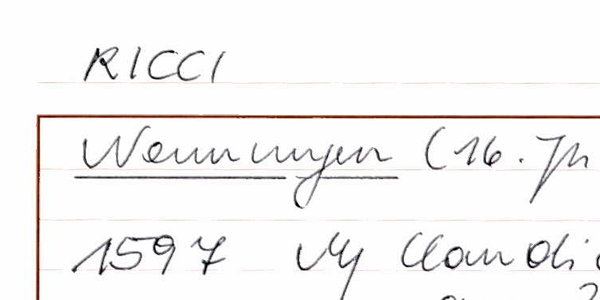 RICCI
Nennungen (16. Jh
1597 Claudi